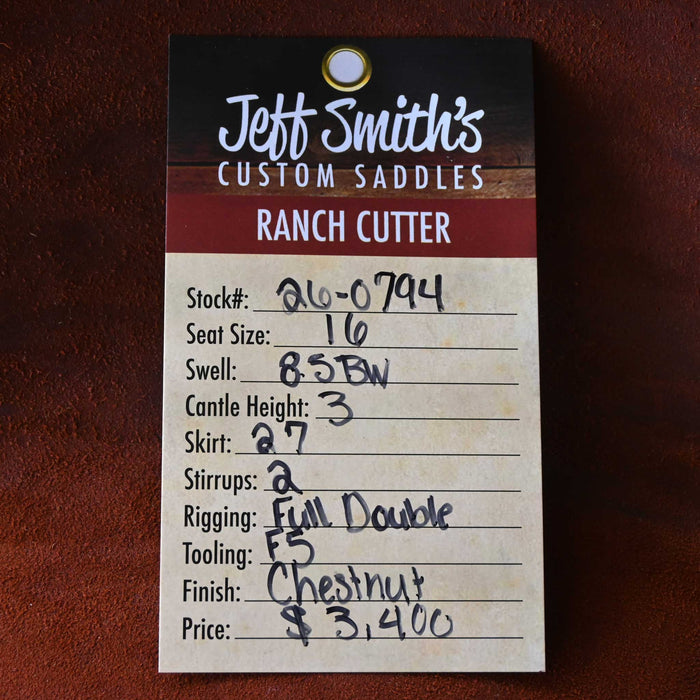 Jeff Smith's
CUSTOM SADDLES
RANCH CUTTER
Stock#: 26-0794
Seat Size: 16
Swell: 8.5 BW
Cantle Height: 3
Skirt: 27
Stirrups: 2
Rigging: Full Double
Tooling: F5
Finish: Chestnut
Price: $3,400